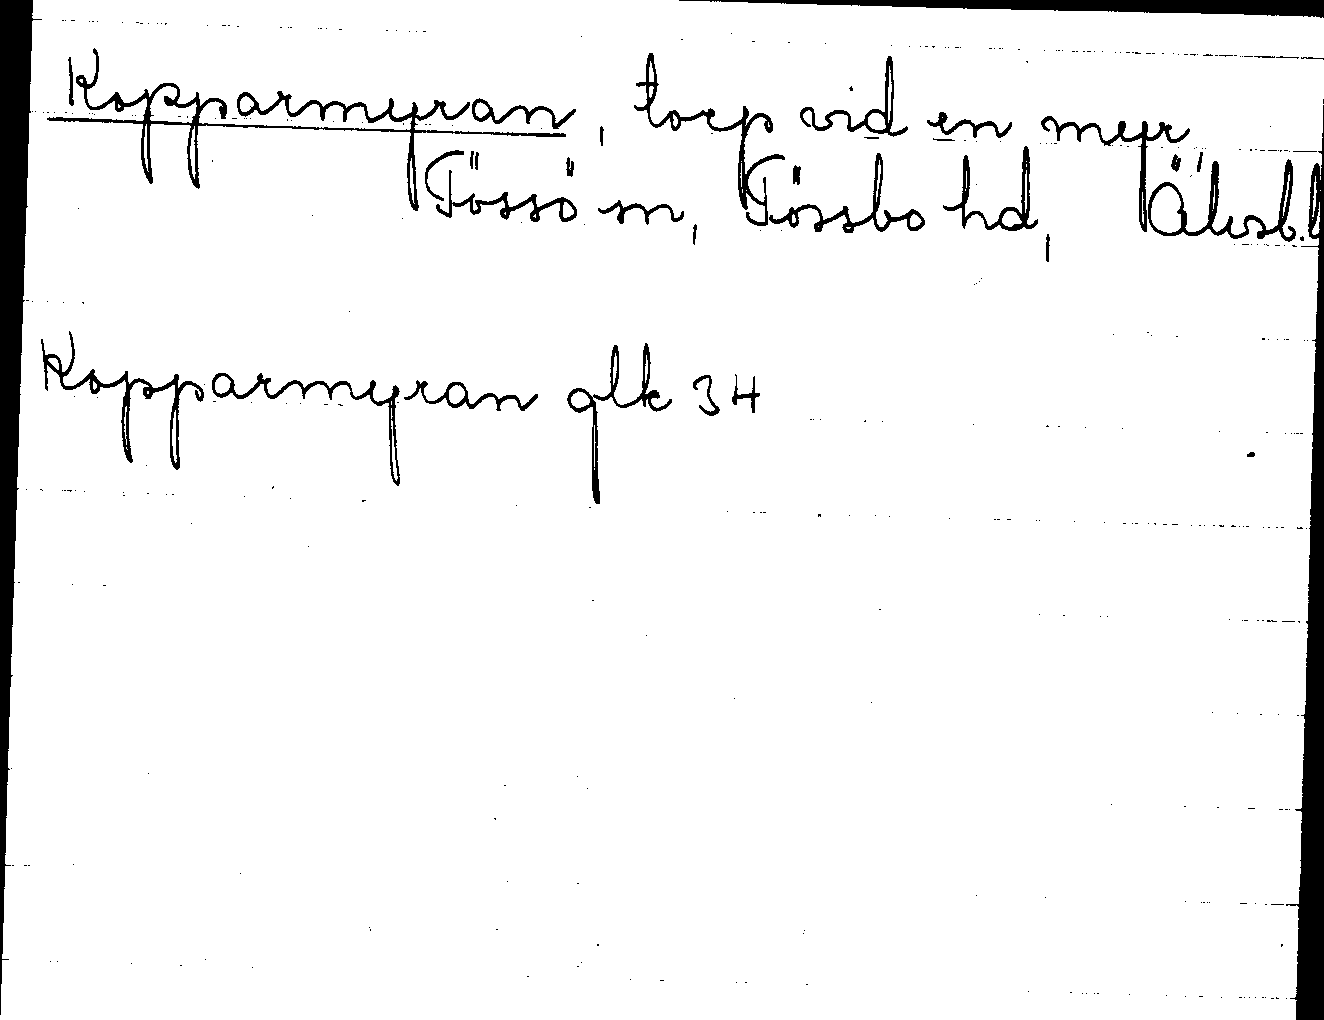 Kopparmyran, torp vid en myr,
Tössö sn, Tössbo hd, Älvsb.l
Kopparmyran glk 34